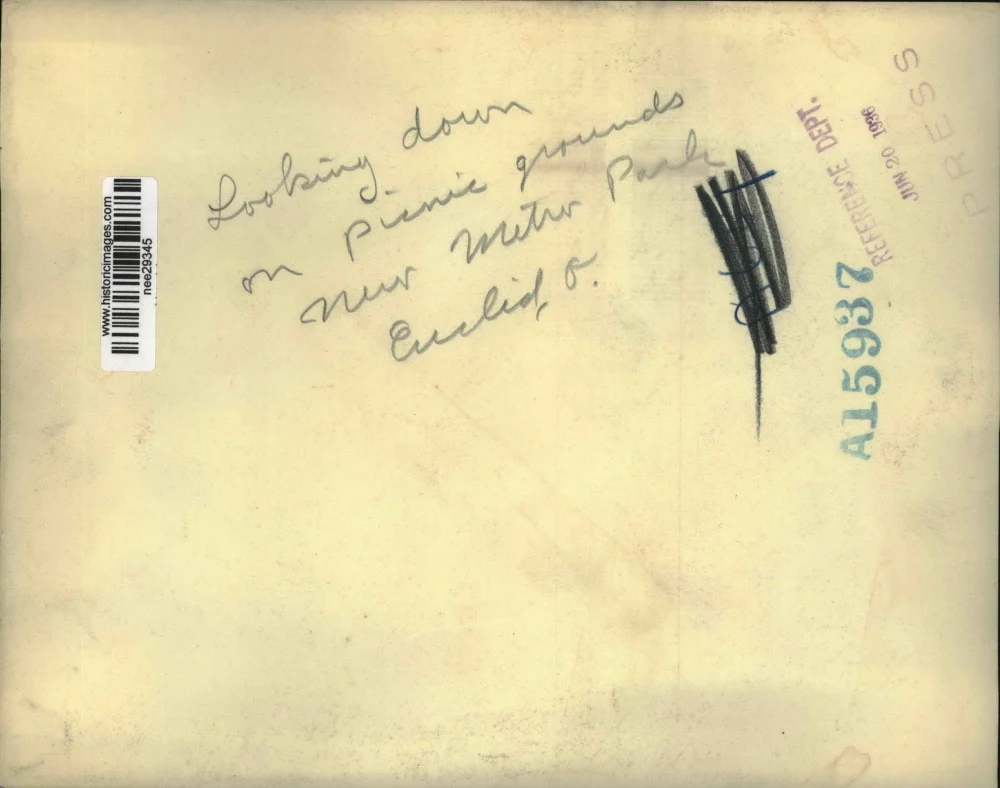 Looking down
on picnic grounds
new Metro Park
Euclid, O.
www.historicimages.com
nee29345
REFERENCE DEPT.
JUN 20 1936
PRESS
A15937